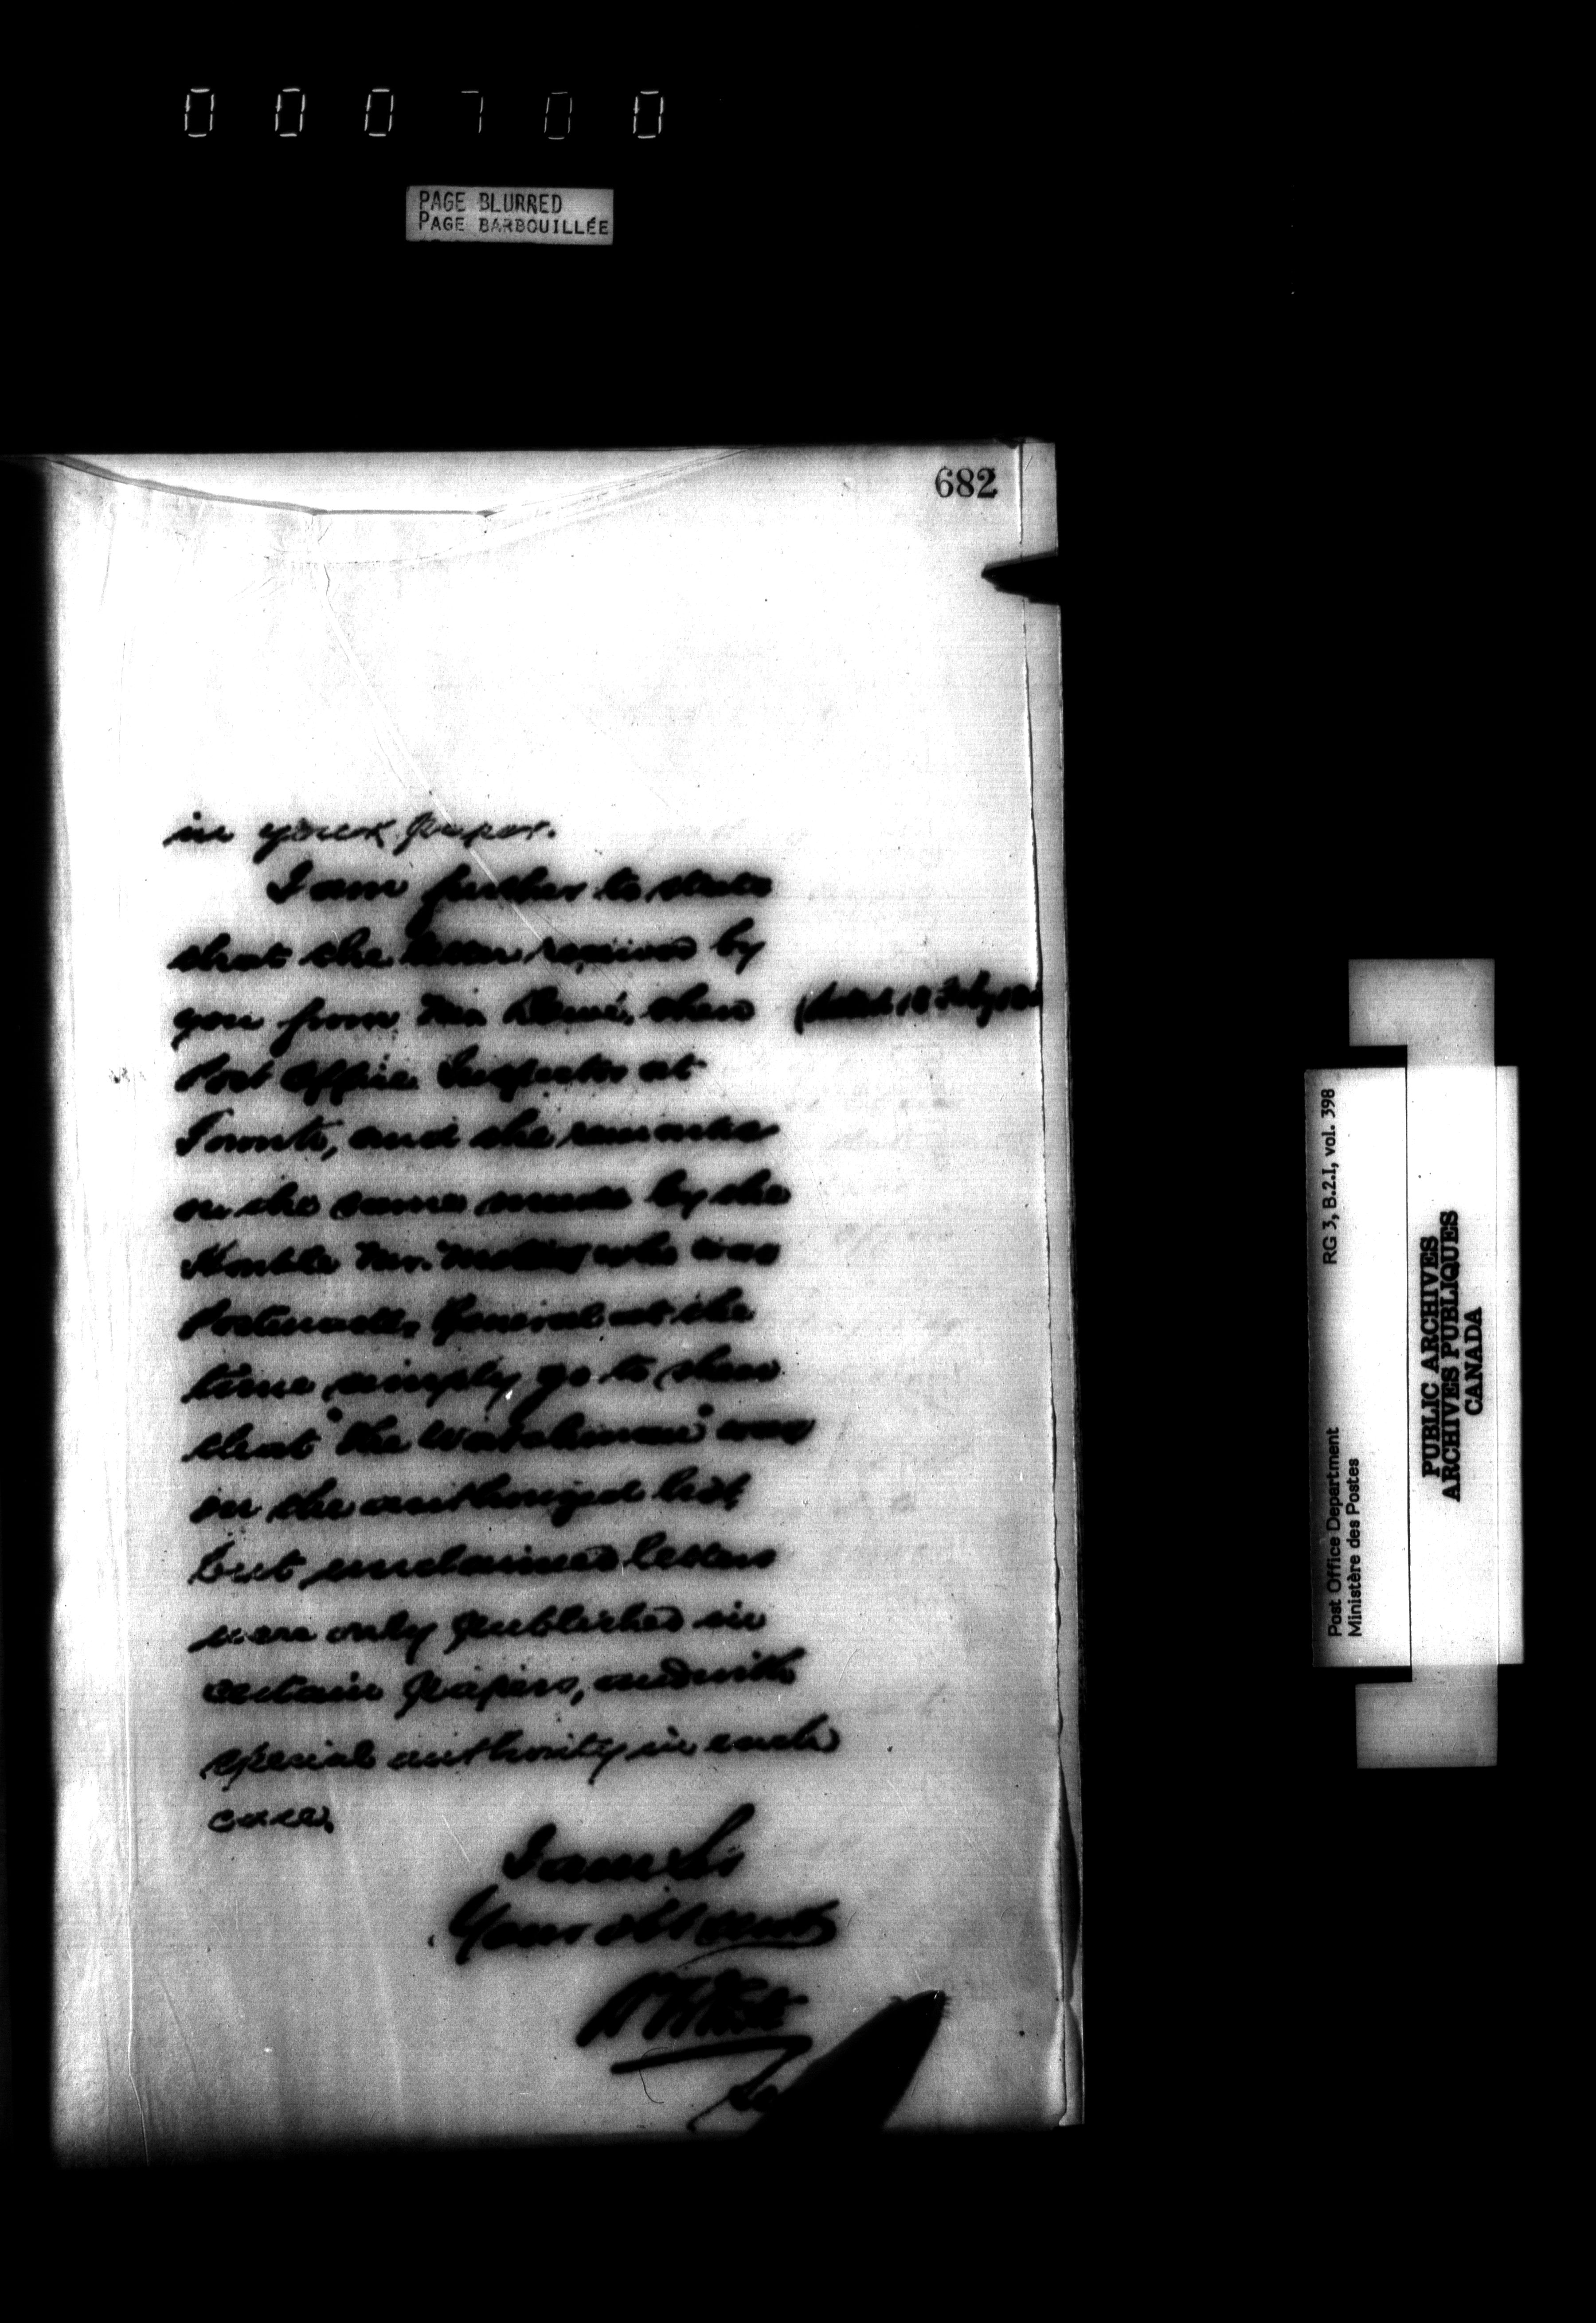 000700
PAGE BLURRED
PAGE BARBOUILLÉE
682
in your paper.
I am further to state
that the letter received by
you from Mr. Dewé, then
(dated 18 Feby
Post Office Inspector at
Toronto, and the remarks
on the same made by the
Honble Mr. who was
Postmaster General at the
time simply go to show
that "the Watchman" was
on the authorized list,
but unclaimed letters
were only published in
certain papers, and with
special authority in each
case.
I am Sir
Your obt servt
RG 3, B.2.1, vol. 398
Post Office Department
Ministère des Postes
PUBLIC ARCHIVES
ARCHIVES PUBLIQUES
CANADA